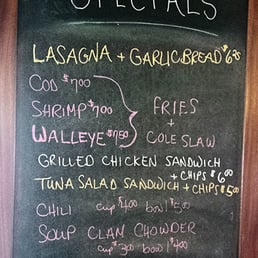 SPECIALS
LASAGNA + GARLIC BREAD $6.75
COD $7.00
SHRIMP $7.00
WALLEYE $7.50
FRIES
+
COLE SLAW
GRILLED CHICKEN SANDWICH
+ CHIPS $6.00
TUNA SALAD SANDWICH + CHIPS $5.00
CHILI cup $4.00 bowl $5.00
SOUP CLAN CHOWDER
cup $3.00 bowl $4.00